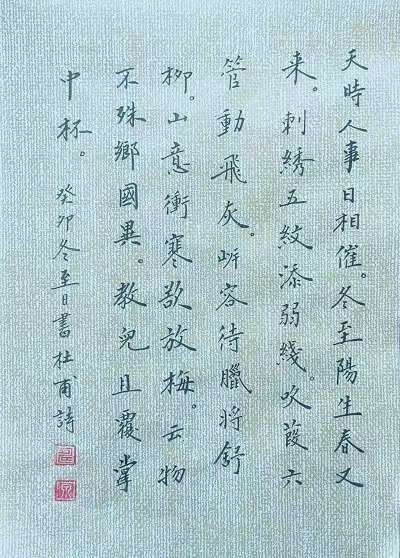 天時人事日相催。冬至陽生春又
来。刺綉五紋添弱綫。吹葭六
管動飛灰。岸容待臘將舒
柳。山意衝寒欲放梅。云物
不殊鄉國異。教兒且覆掌
中杯。癸卯冬至日書杜甫詩